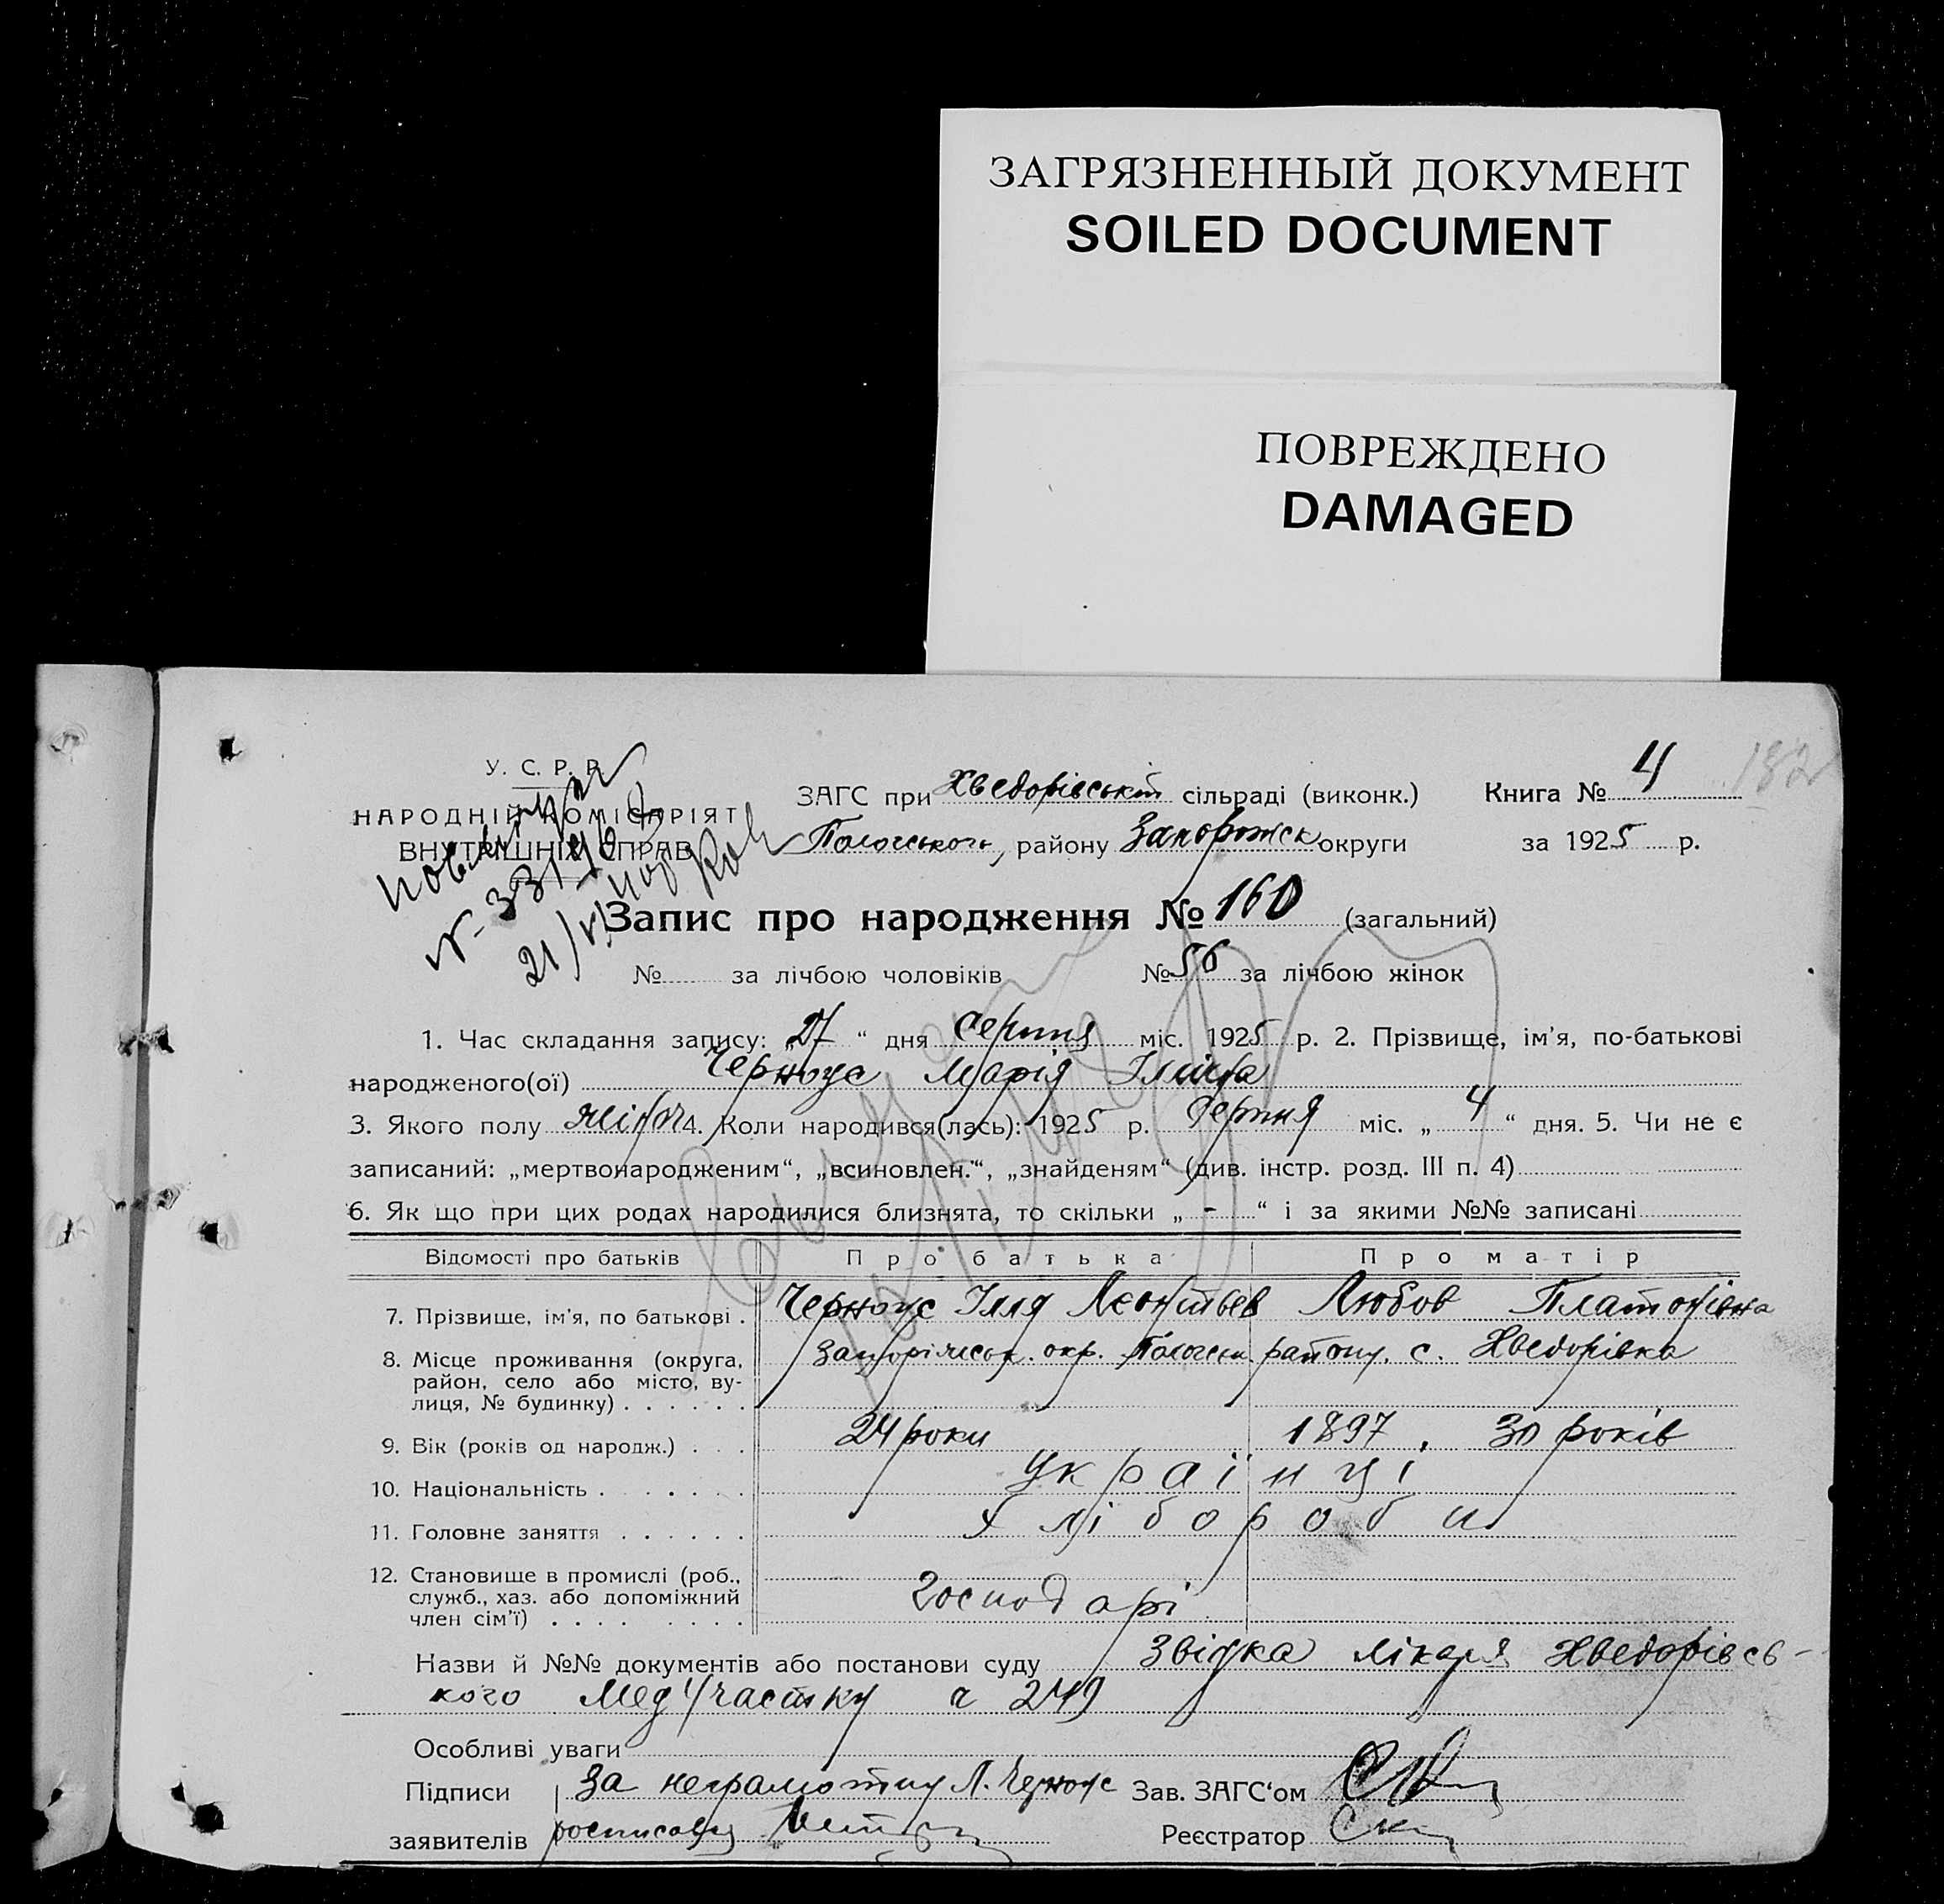 ЗАГРЯЗНЕННЫЙ ДОКУМЕНТ
SOILED DOCUMENT
ПОВРЕЖДЕНО
DAMAGED
182
У. С. Р. Р.
НАРОДНІЙ КОМІСАРІЯТ
ВНУТРІШНІХ СПРАВ
ЗАГС при Хведорівській сільраді (виконк.) Книга № 4
Пологського, району Запорожск округи за 1925 р.
Запис про народження № 160 (загальний)
№ за лічбою чоловіків № 56 за лічбою жінок
1. Час складання запису: „27“ дня Серпня міс. 1925 р. 2. Прізвище, ім'я, по-батькові
народженого(ої) Черноус Марія Ілліча
3. Якого полу жіноч 4. Коли народився(лась): 1925 р. Серпня міс. „4“ дня. 5. Чи не є
записаний: „мертвонародженим“, „всиновлен.“, „знайденям“ (див. інстр. розд. III п. 4)
6. Як що при цих родах народилися близнята, то скільки „-“ і за якими №№ записані
Відомості про батьків Про батька Про матір
7. Прізвище, ім'я, по батькові . Черноус Ілля Леонтьев Любов Платонівна
8. Місце проживання (округа, Запоріжськ. окр. Пологськ. району. с. Хведорівка
район, село або місто, ву-
лиця, № будинку) . . . . . .
9. Вік (років од народж.) . . . 24 роки 1897, 30 років
10. Національність . . . . . . українці
11. Головне заняття . . . . . . хлібороби
12. Становище в промислі (роб.,
служб., хаз. або допоміжний Господарі
член сім'ї) . . . . . . . .
Назви й №№ документів або постанови суду Звідка лікаря Хведорівсь-
кого Мед участку ч 249
Особливі уваги
Підписи За неграмотну Л. Черноус Зав. ЗАГС‘ом
заявителів росписався Реєстратор